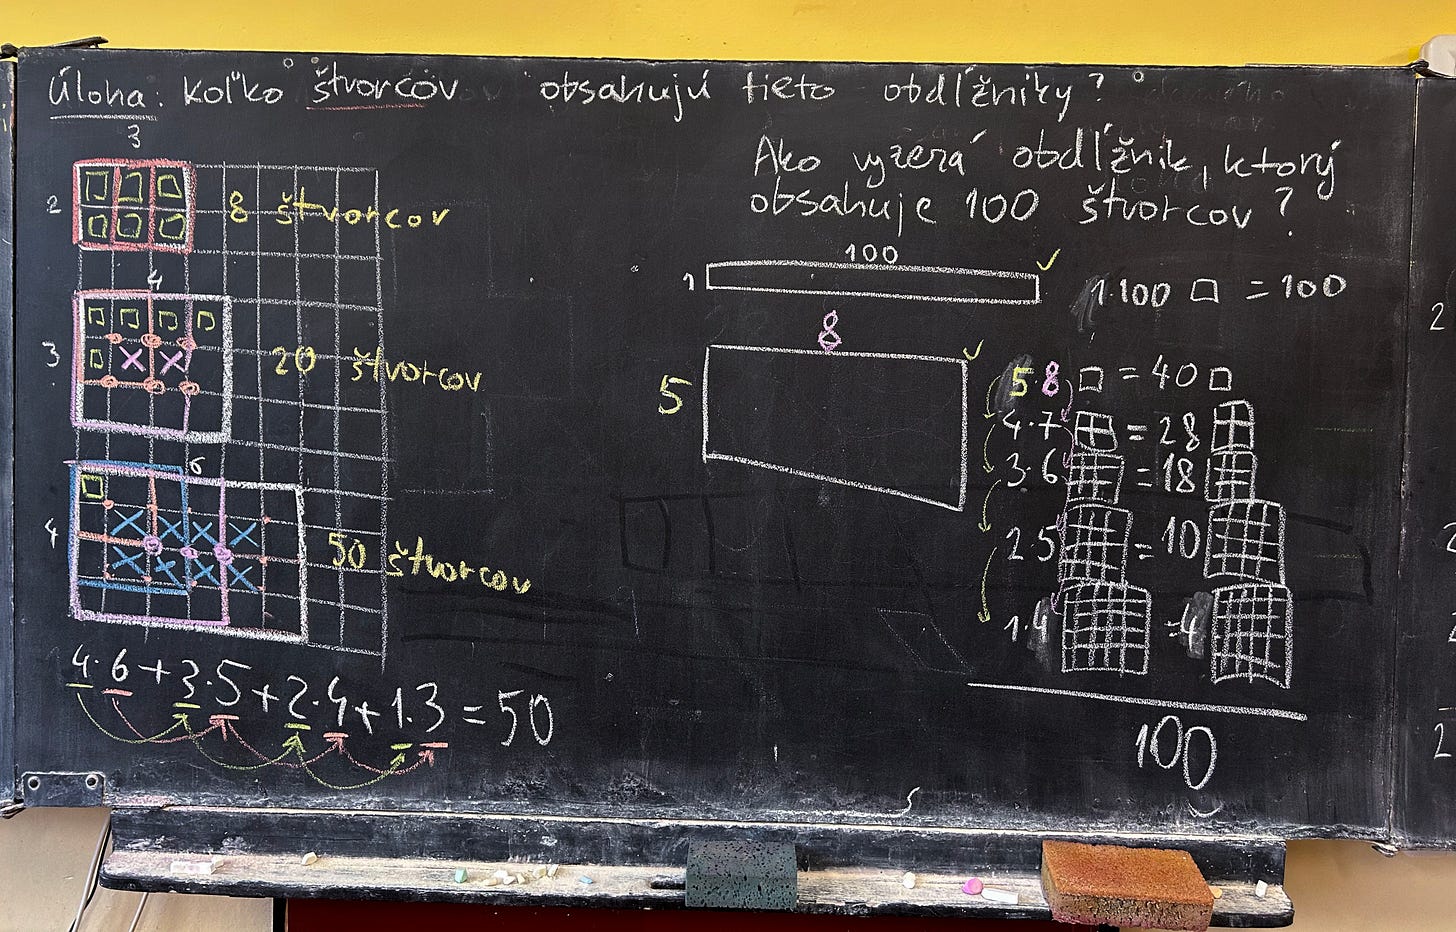 Úloha: Koľko štvorcov obsahujú tieto obdĺžniky?
3
2
8 štvorcov
4
3
20 štvorcov
6
4
50 štvorcov
4·6+3·5+2·4+1·3=50
Ako vyzerá obdĺžnik, ktorý
obsahuje 100 štvorcov?
100
1
1·100 □ = 100
8
5
5 8 □ = 40 □
4·7 = 28
3·6 = 18
2·5 = 10
1·4 = 4
100
2
2